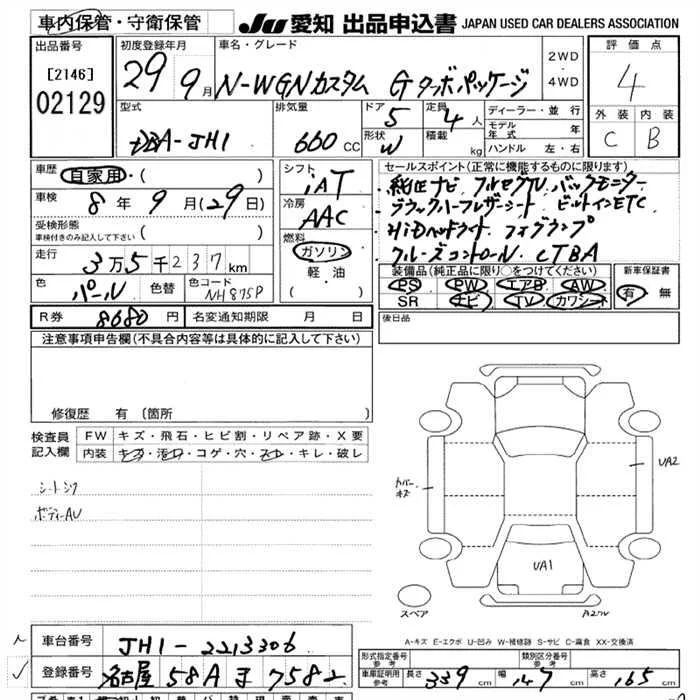 車内保管・守衛保管
JU 愛知 出品申込書 JAPAN USED CAR DEALERS ASSOCIATION
出品番号
[2146]
02129
初度登録年月
29 9月
車名・グレード
N-WGNカスタム Gターボパッケージ
2WD
・
4WD
評価点
4
外装 内装
C B
型式
DBA-JH1
排気量
660 CC
ドア
5
形状
W
定員
4人
積載 kg
ディーラー・並行
モデル年式 年
ハンドル 左・右
車歴
自家用・( )
車検
8年9月(29日)
受検形態
車検付きのみ記入して下さい ( )
走行
3万5千237km
色
パール
色替
色コード
NH875P
シフト
iAT
冷房
AAC
燃料
ガソリン
軽・油
( )
セールスポイント(正常に機能するものに限ります)
純正ナビ フルセグTV バックモニター
ブラックハーフレザーシート ビルトインETC
HiDヘッドライト フォグランプ
クルーズコントロール CTBA
装備品(純正品に限り○をつけてください)
PS PW エアB AW
SR ナビ TV カワシート
新車保証書
有・無
R券 8680円 名変通知期限 月 日
後日品
注意事項申告欄(不具合内容等は具体的に記入して下さい)
修復歴 有 (箇所 )
検査員
記入欄
FW キズ・飛石・ヒビ割・リペア跡・X要
内装 キズ・汚れ・コゲ・穴・スレ・キレ・破レ
シートシワ
ボディーAU
カバー
キズ
UA2
UA1
スペア
A-キズ E-エクボ U-凹み W-補修跡 S-サビ C-腐食 XX-交換済
車台番号 JH1-2213306
登録番号 名古屋 58A 7582
形式指定番号
参考
類別区分番号
参考
車庫証明用
参考
長さ 339 cm 幅 147 cm 高さ 165 cm